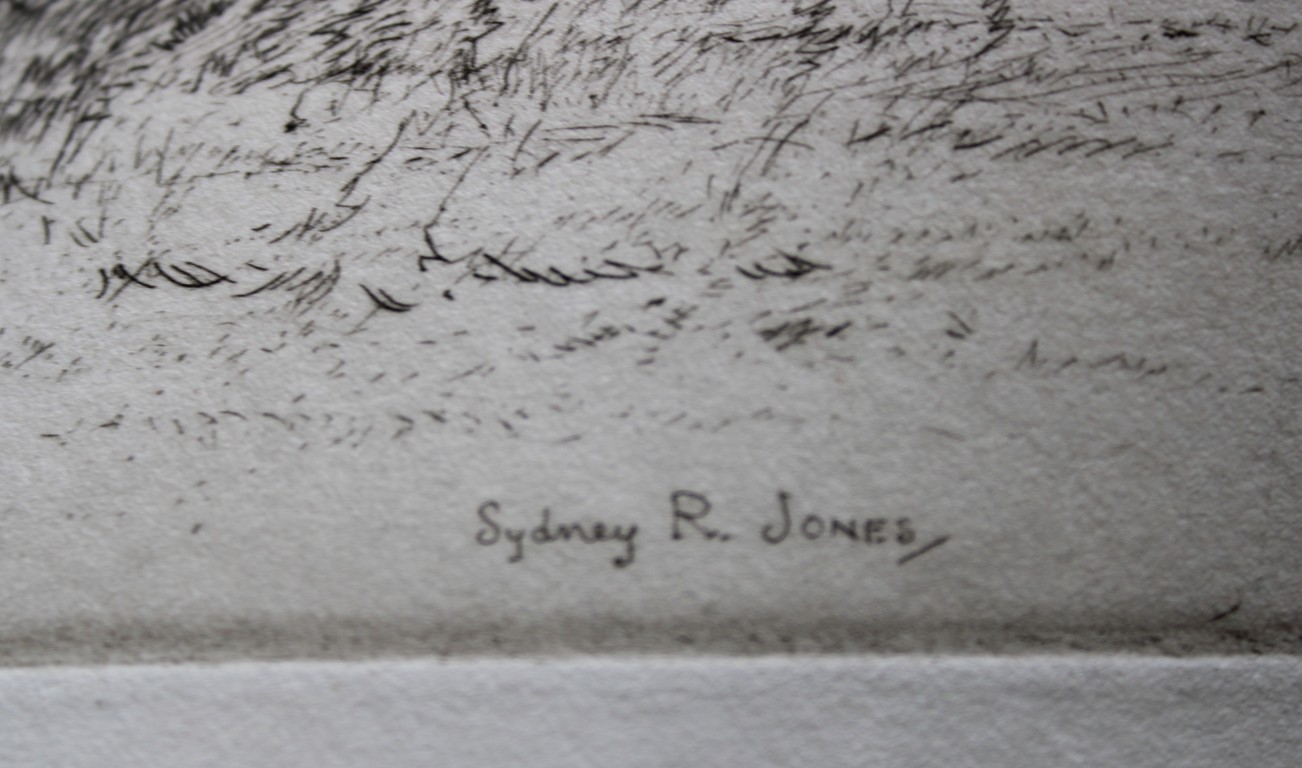 Sydney R. JONES